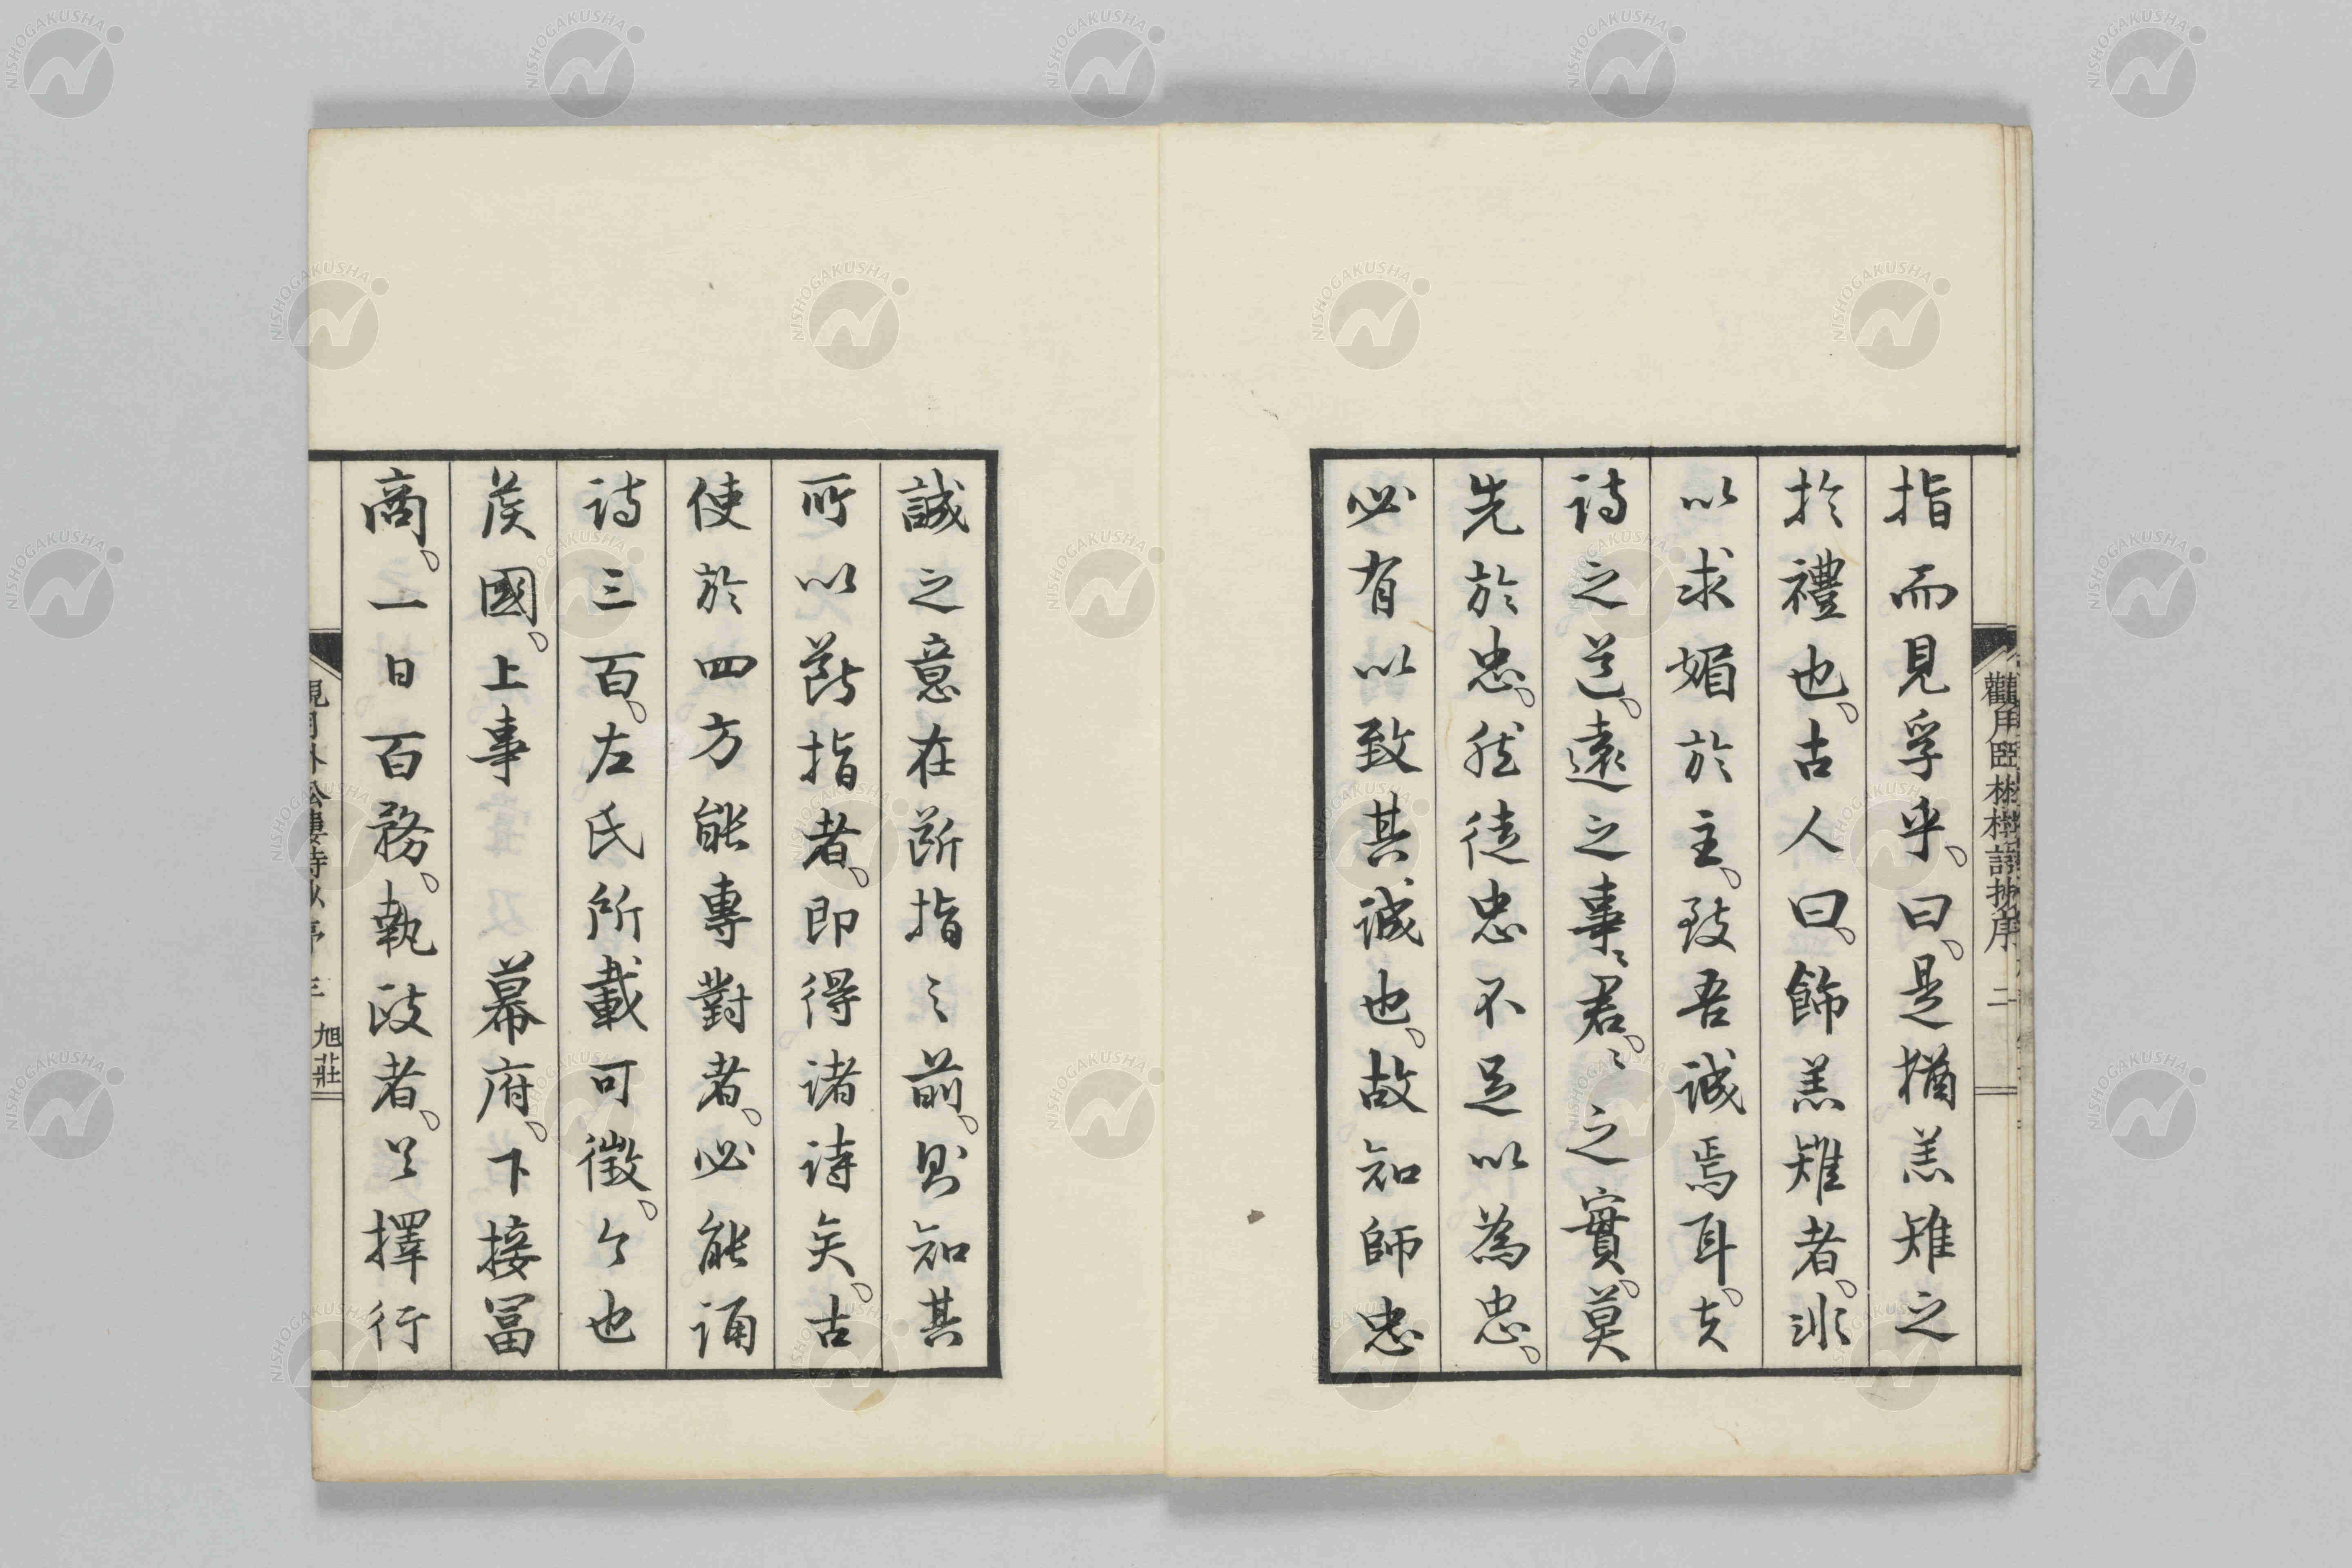 指而見孚乎。曰。是猶羔雉之
於禮也。古人曰。飾羔雉者。非
以求媚於主。致吾誠焉耳。夫
詩之道。遠之事〻君。〻之實。莫
先於忠。然徒忠不足以為忠。
必有以致其誠也。故知師忠
誠之意在斯指之前。則知其
所以斯指者。即得諸詩矣。古
使於四方能專對者。必能誦
詩三百。左氏所載可徵。今也
侯國。上事 幕府。下接冨
商。一日百務。執政者。必擇行
旭莊
NISHOGAKUSHA